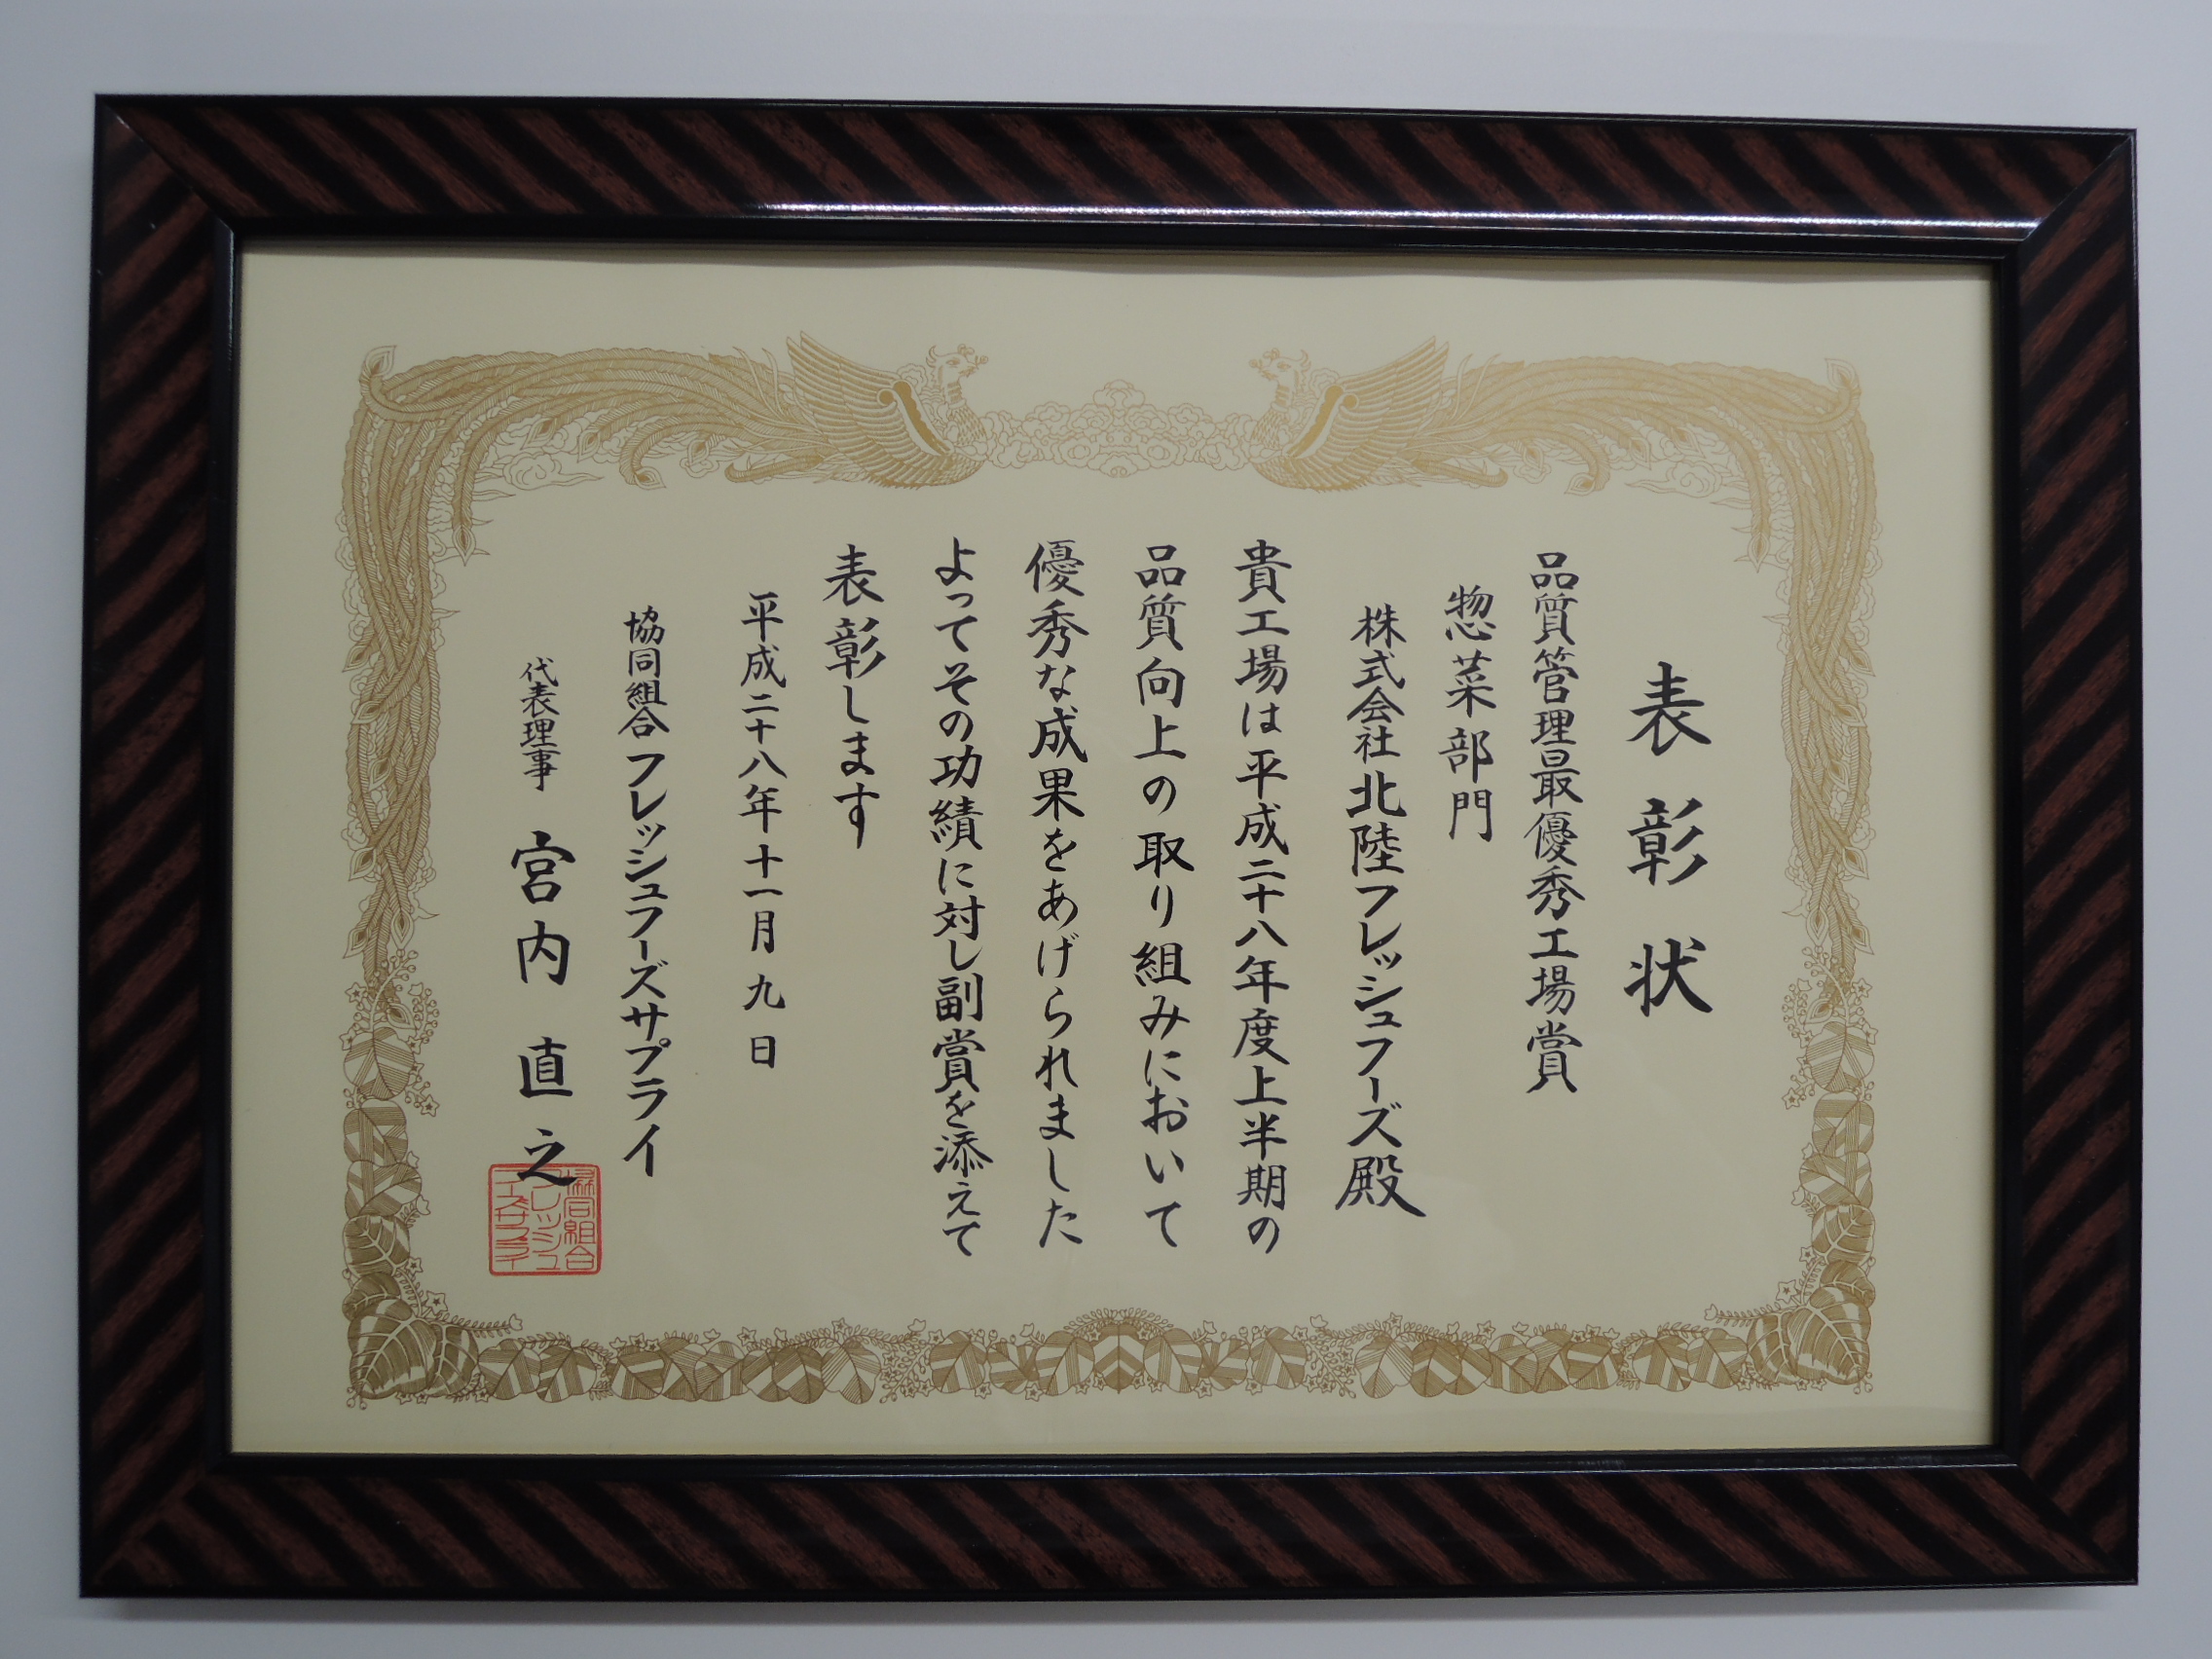 表彰状
品質管理最優秀工場賞
惣菜部門
株式会社北陸フレッシュフーズ殿
貴工場は平成二十八年度上半期の
品質向上の取り組みにおいて
優秀な成果をあげられました
よってその功績に対し副賞を添えて
表彰します
平成二十八年十一月九日
協同組合フレッシュフーズサプライ
代表理事 宮内直之
協同組合
フレッシュフ
ーズサプライ